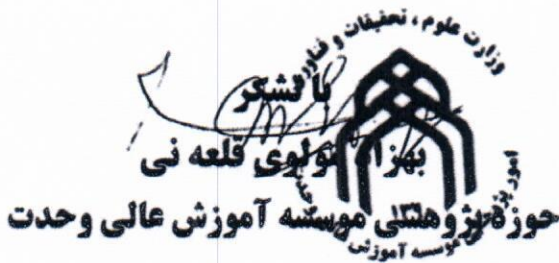 وزارت علوم، تحقیقات و فناوری
با تشکر
بهزاد مولوی قلعه نی
حوزه پژوهشی موسسه آموزش عالی وحدت
امور
موسسه آموزش